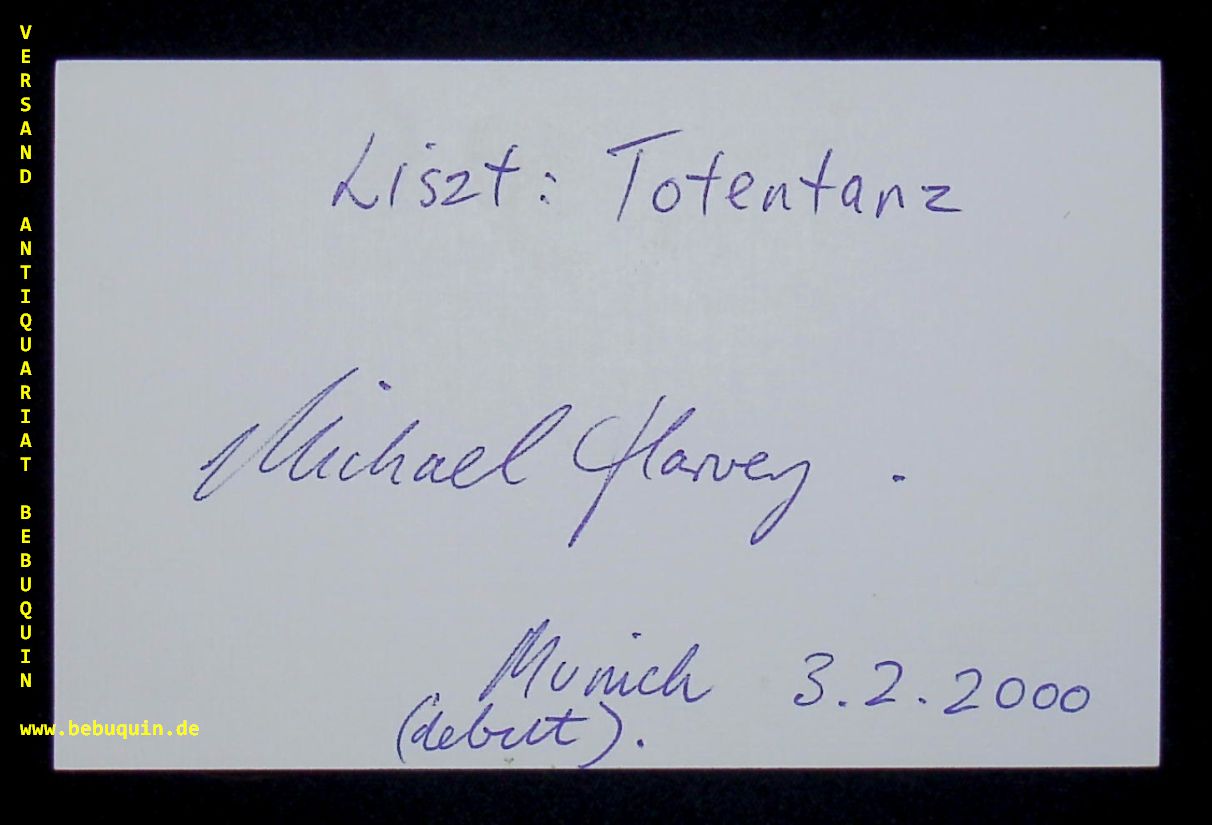 VERSAND ANTIQUARIAT BEBUQUIN
www.bebuquin.de
Liszt: Totentanz
Michael Harvey .
Munich 3.2.2000
(debut).